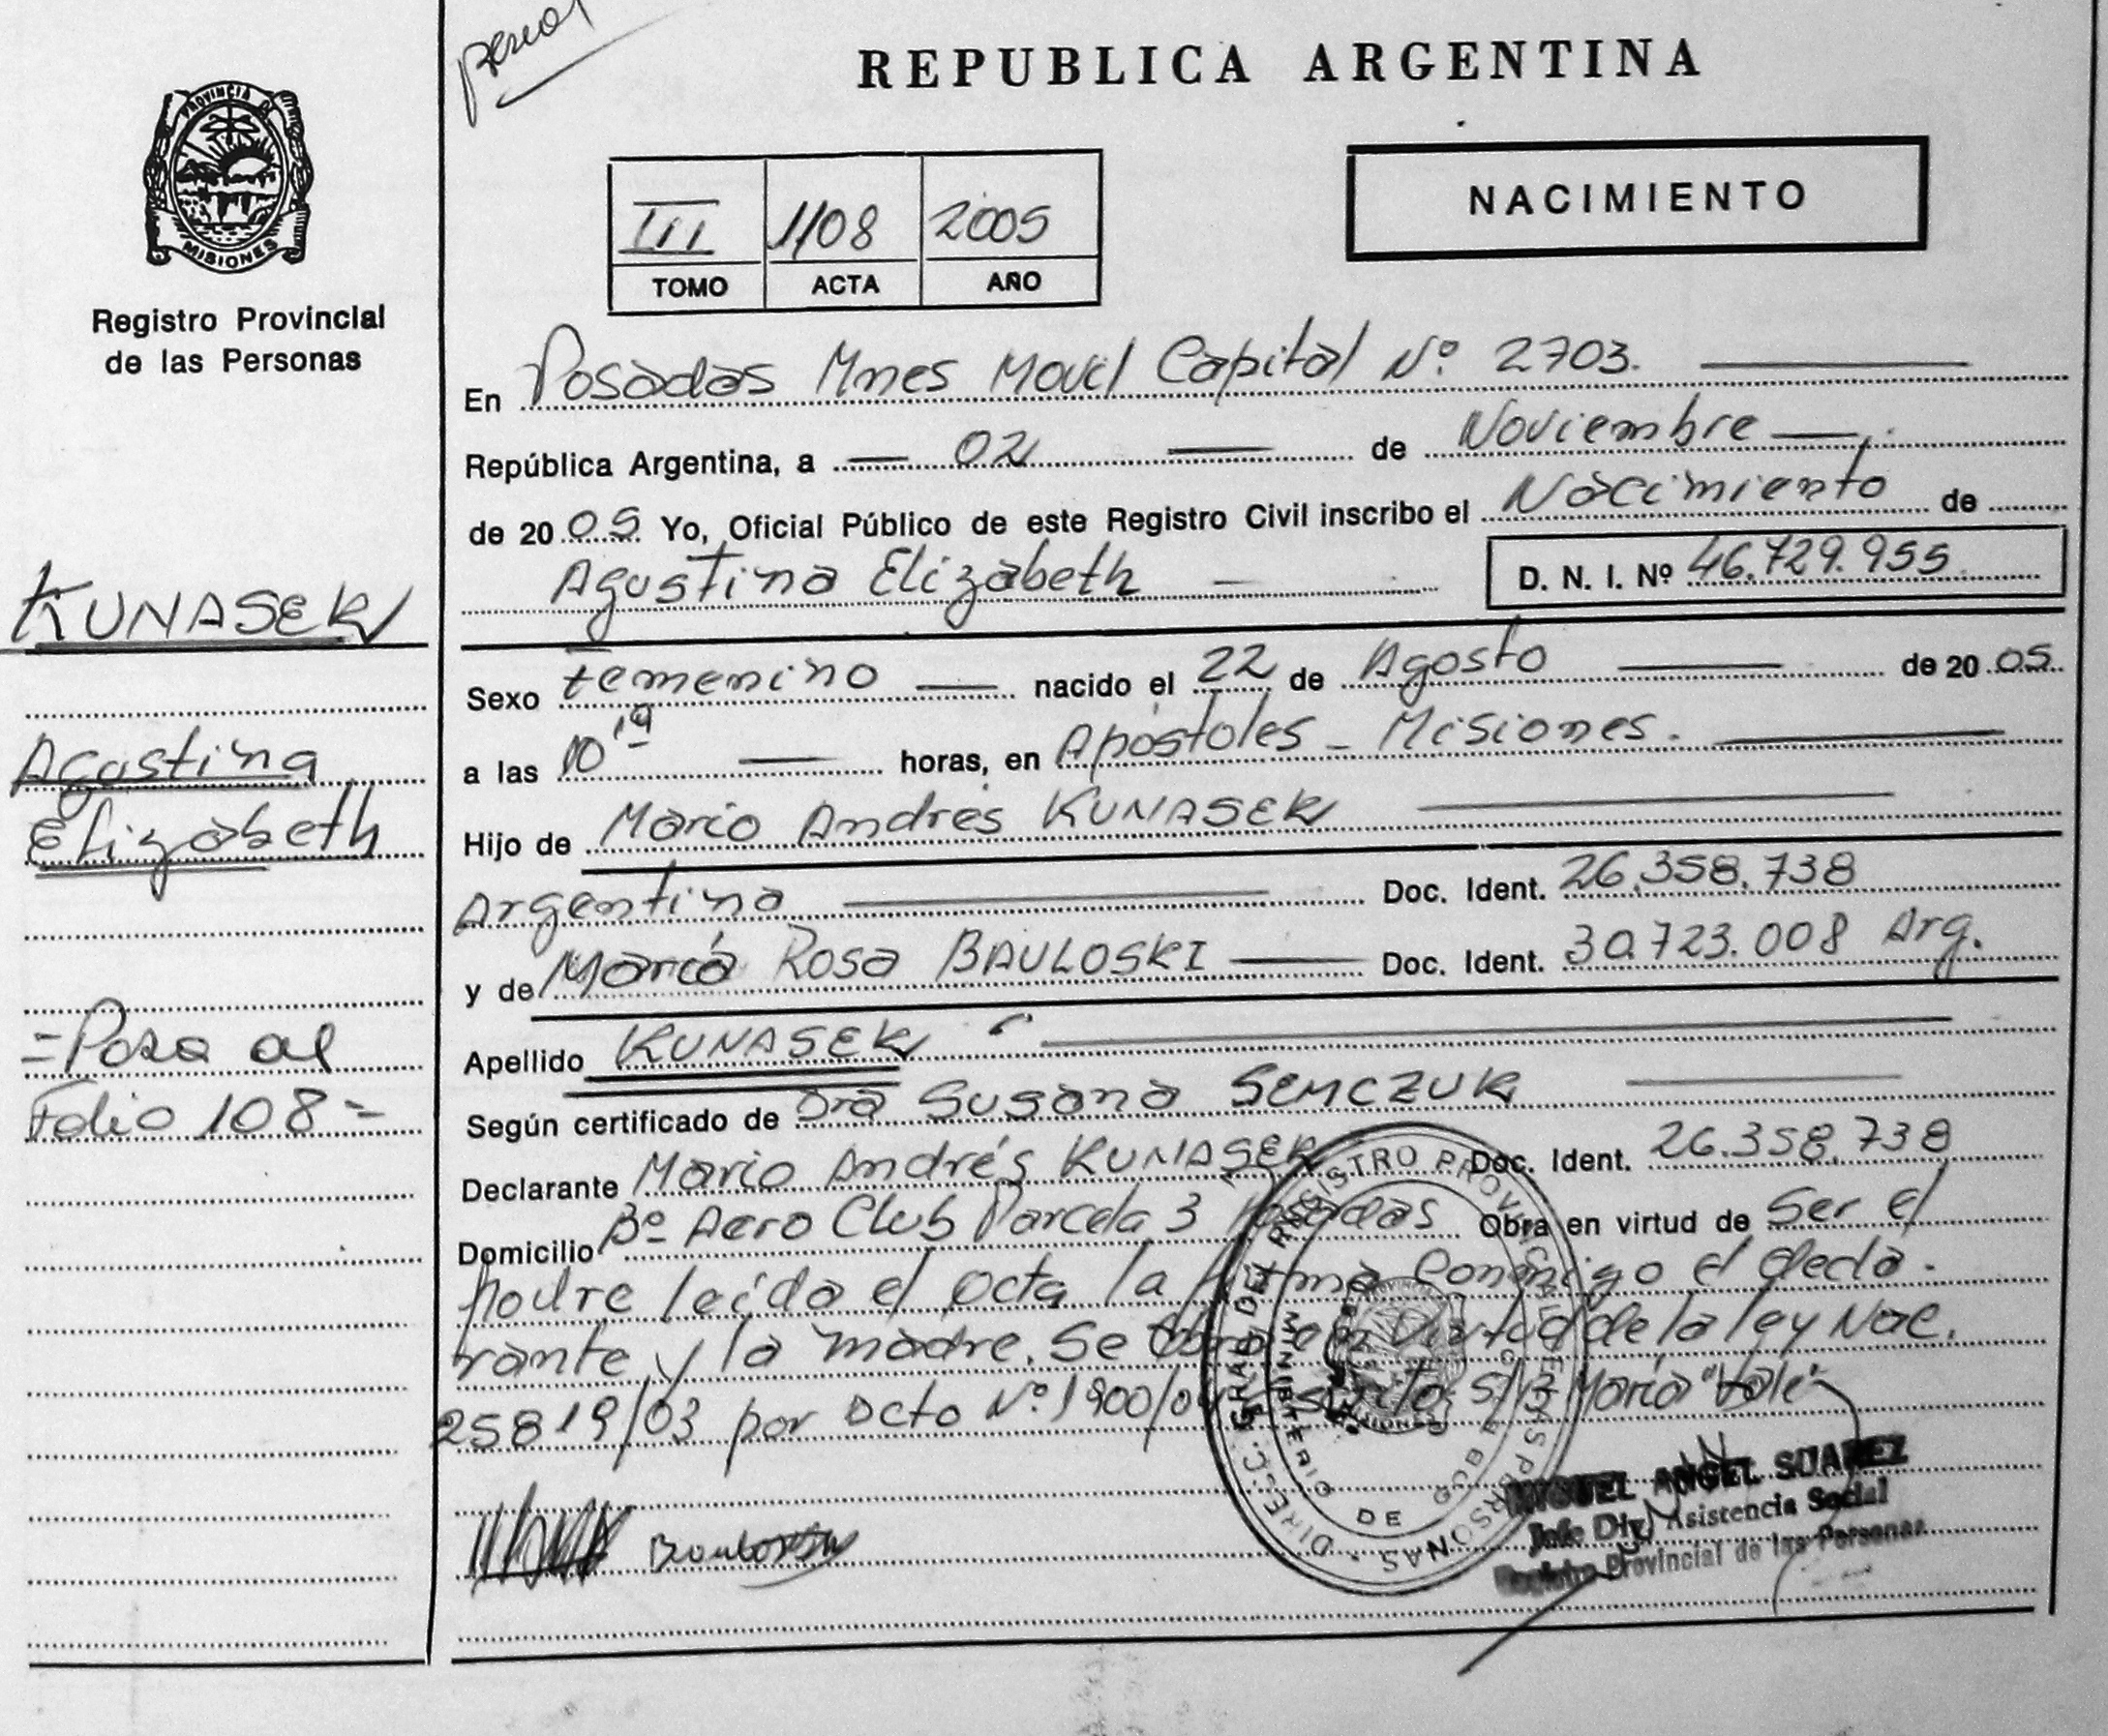 REPUBLICA ARGENTINA
PROVINCIA DE
MISIONES
Registro Provincial
de las Personas
NACIMIENTO
III 1108 2005
TOMO ACTA AÑO
En Posadas Mnes Movil Capital Nº 2703.
República Argentina, a 02 de Noviembre
de 20 05 Yo, Oficial Público de este Registro Civil inscribo el Nacimiento de
Agustina Elizabeth D. N. I. Nº 46.729.955
KUNASEK
Agustina
Elizabeth
=Pasa al
Folio 108=
Sexo Femenino nacido el 22 de Agosto de 20 05
a las 10 19 horas, en Apóstoles - Misiones.
Hijo de Mario Andrés KUNASEK
Argentina Doc. Ident. 26.358.738
y de María Rosa BAULOSKI Doc. Ident. 30.723.008 Arg.
Apellido KUNASEK
Según certificado de Dra Susana SEMCZUK
Declarante Mario Andrés KUNASEK Doc. Ident. 26.358.738
Domicilio Bº Aero Club Parcela 3 Posadas Obra en virtud de Ser el
Padre leída el acta la firma conmigo el decla-
rante y la madre. Se Obra en virtud de la ley Nac.
25819/03 por Dcto Nº 1900/04 María "Vale"
MIGUEL ANGEL SUAREZ
Jefe Div. Asistencia Social
Registro Provincial de las Personas